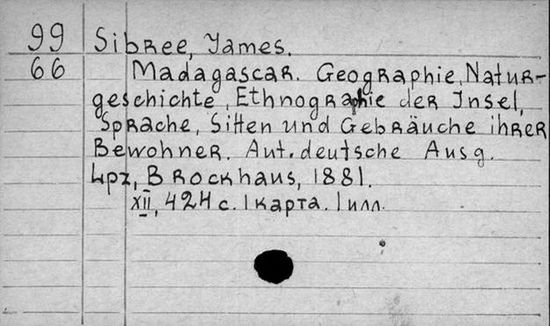 99 Sibree, James.
66 Madagascar. Geographie, Natur-
geschichte, Ethnographie der Insel,
Sprache, Sitten und Gebräuche ihrer
Bewohner. Aut. deutsche Ausg.
Lpz, Brockhaus, 1881.
XII, 424 с. 1 карта. 1 илл.